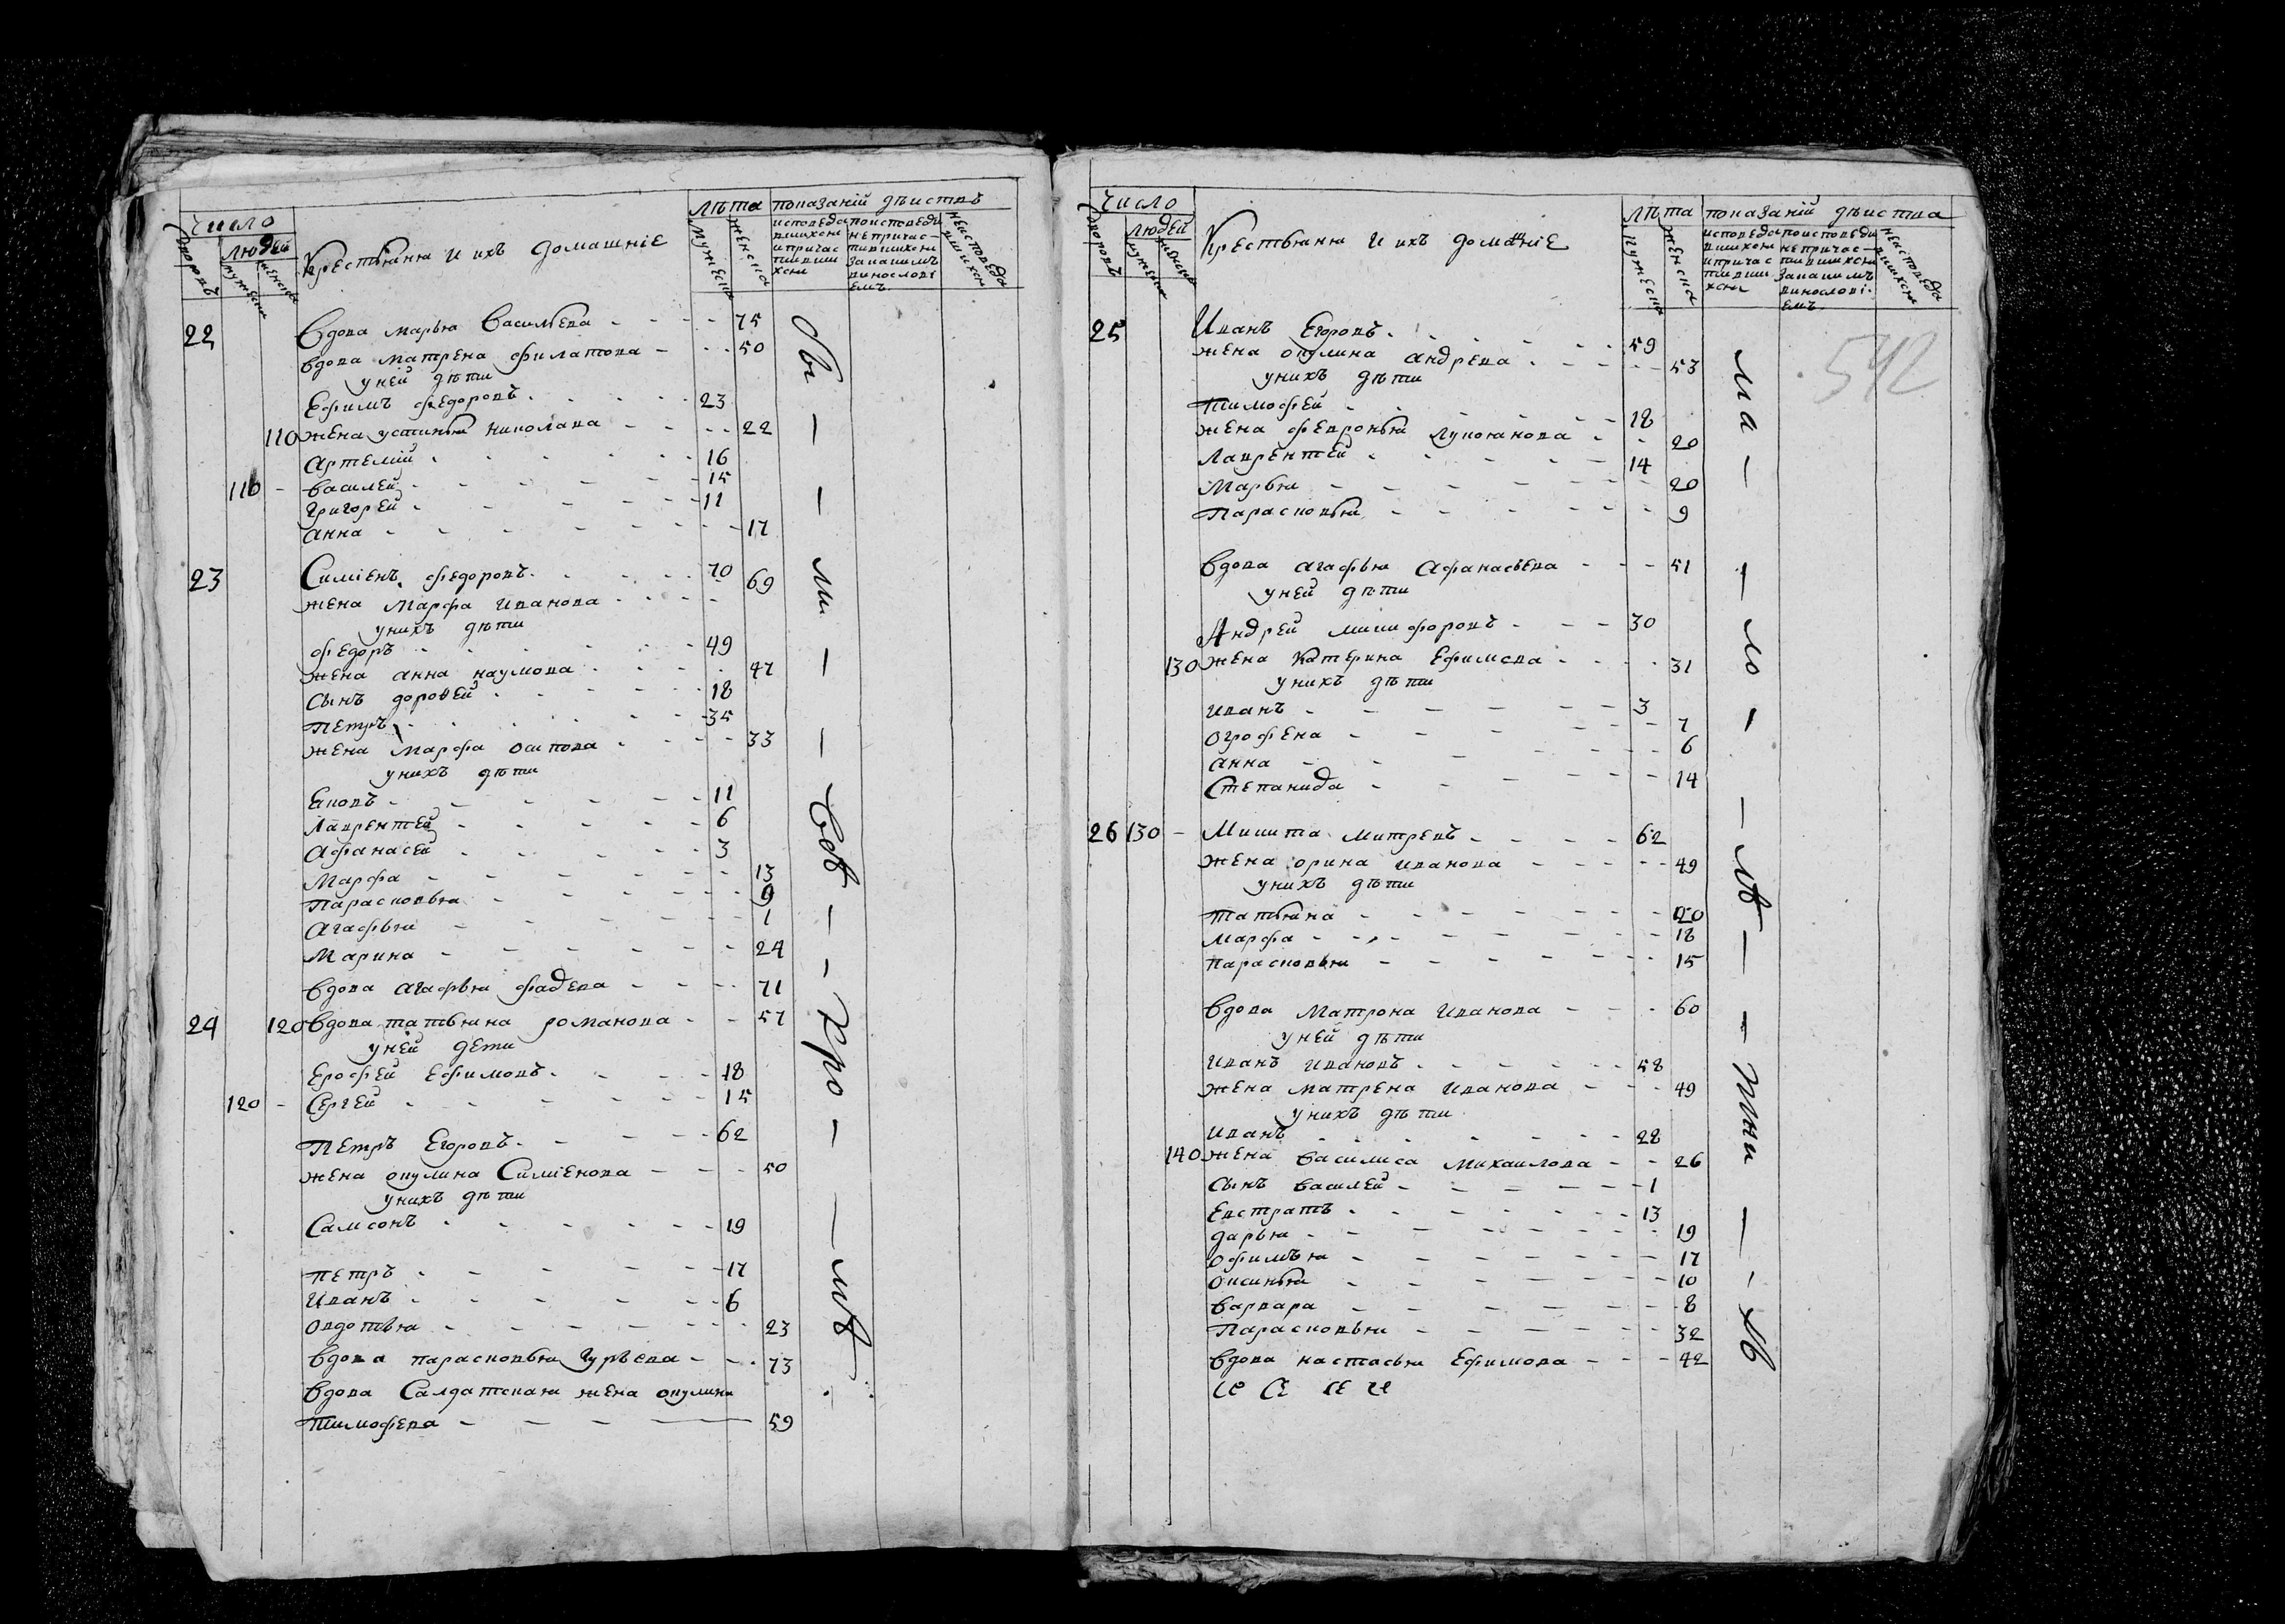 число
дворовъ
людей
мужеска
женска
Крестьяня и ихъ домашніе
лѣта
мужеска
женска
показаній дѣиствъ
исповеда
вшихся
и причас
тивши
хся
по исповеди
не причас-
тившихся
за какимъ
винослові
емъ
неисповеда
вшихся
22 Вдова марья Васильева - - - 75
вдова матрена филатова - - - 50
у ней дѣти
Ефимъ федоровъ - - - 23
110 жена устинья николава - - - 22
Артемій - - - 16
116 - василей - - - 15
Григорей - - - 11
анна - - - 17
23 Симіенъ федоровъ - - - 70
жена Марфа иванова - - - 69
у нихъ дѣти
федоръ - - - 49
жена анна наумова - - - 47
сынъ дорофей - - - 18
петръ - - - 35
жена Марфа осипова - - - 33
у нихъ дѣти
Яковъ - - - 11
Лаврентей - - - 6
Афанасей - - - 3
Марфа - - - 13
Парасковья - - - 9
Агафья - - - 1
Марина - - - 24
вдова агафья фадева - - - 71
24 120 вдова татьяна романова - - 57
у ней дети
Ерофей Ефимовъ - - - 18
120 - Сергей - - - 15
Петръ Егоровъ - - - 62
жена окулина Симіенова - - - 50
у нихъ дѣти
Самсонъ - - - 19
петръ - - - 17
Иванъ - - - 6
овдотья - - - 23
вдова парасковья гурьева - - - 73
вдова Салдатская жена окулина
тимофева - - - 59
число
дворовъ
людей
мужеска
женска
Крестьяня и ихъ домашніе
лѣта
мужеска
женска
показаній дѣиства
исповеда
вшихся
и причас
тивши
хся
по исповеди
не причас-
тившихся
за какимъ
винослові-
емъ
неисповеда
вшихся
542
25 Иванъ Егоровъ - - - 59
жена окулина андрева - - - 53
у нихъ дѣти
тимофей - - - 18
жена февронья лукоянова - - 20
Лаврентей - - - 14
Марья - - - 20
Парасковья - - - 9
вдова агафья афанасьева - - - 51
у ней дѣти
Андрей микифоровъ - - - 30
130 жена катерина Ефимова - - - 31
у нихъ дѣти
иванъ - - - 3
огрофена - - - 7
анна - - - 6
Степанида - - - 14
26 130 - Микита митревъ - - - 62
жена орина иванова - - - 49
у нихъ дѣти
татьяна - - - 20
марфа - - - 18
парасковья - - - 15
вдова Матрона иванова - - - 60
у ней дѣти
иванъ ивановъ - - - 58
жена матрена иванова - - - 49
у нихъ дѣти
иванъ - - - 28
140 жена василиса михаилова - - 26
сынъ василей - - - 1
Евстратъ - - - 13
дарья - - - 19
офимья - - - 17
оксинья - - - 10
варвара - - - 8
Парасковья - - - 32
вдова настасья Ефимова - - - 42